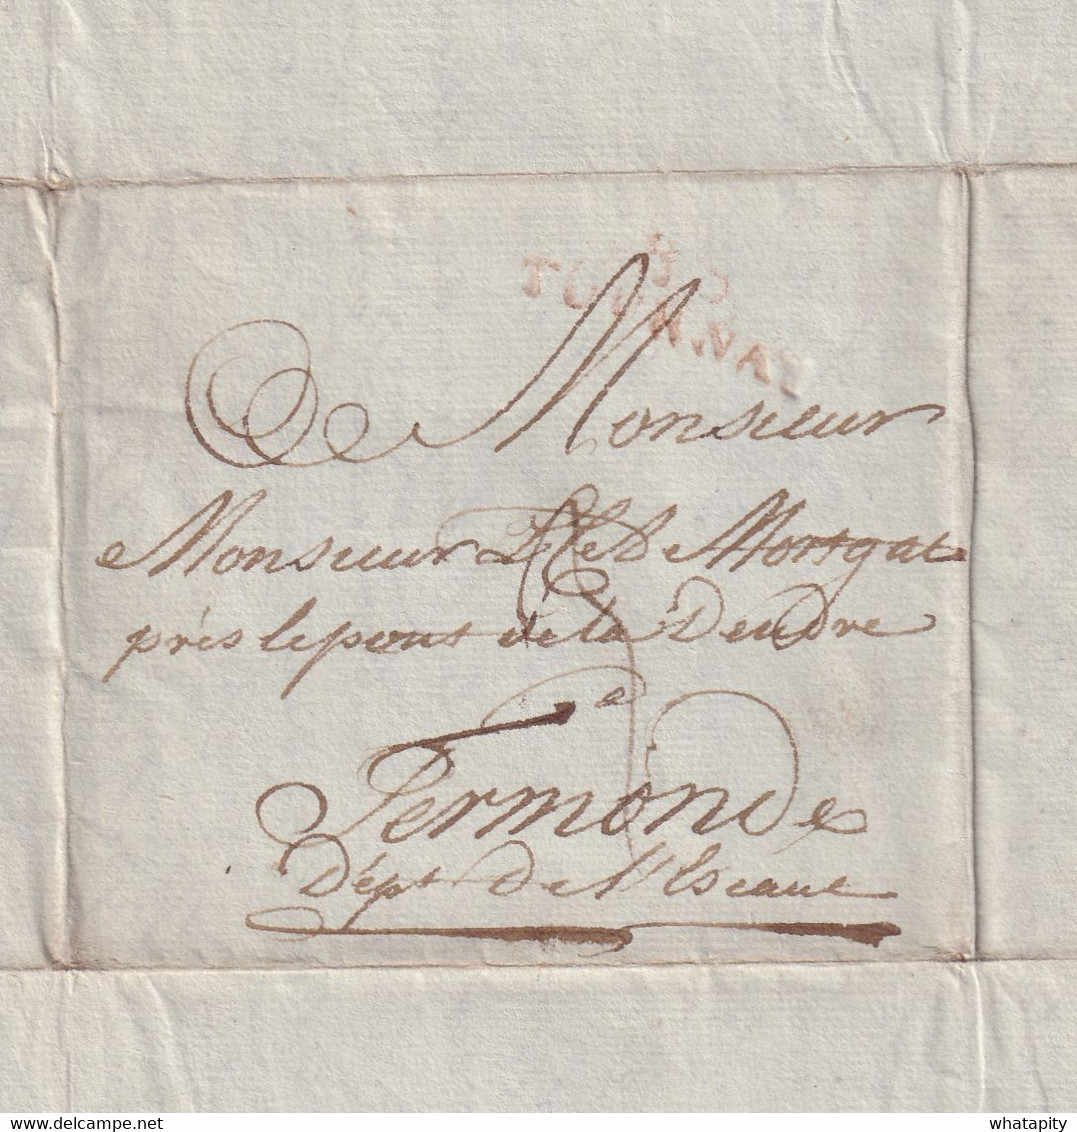 TOURNAY
Monsieur
Monsieur De Mortgat
près le pont de la Dendre
a
Termonde
Dépt De l'Escaut
whatapity
whatapity